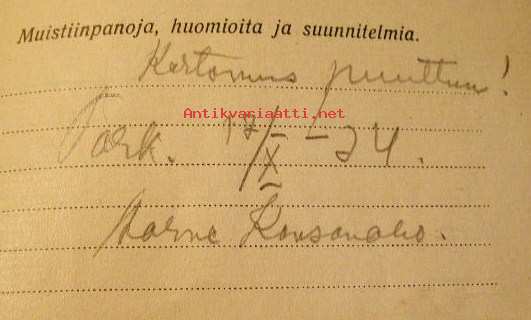 Muistiinpanoja, huomioita ja suunnitelmia.
Kertomus puuttuu!
Antikvariaatti.net
Tark. 17/X -34.
Aarne Kousonalho.